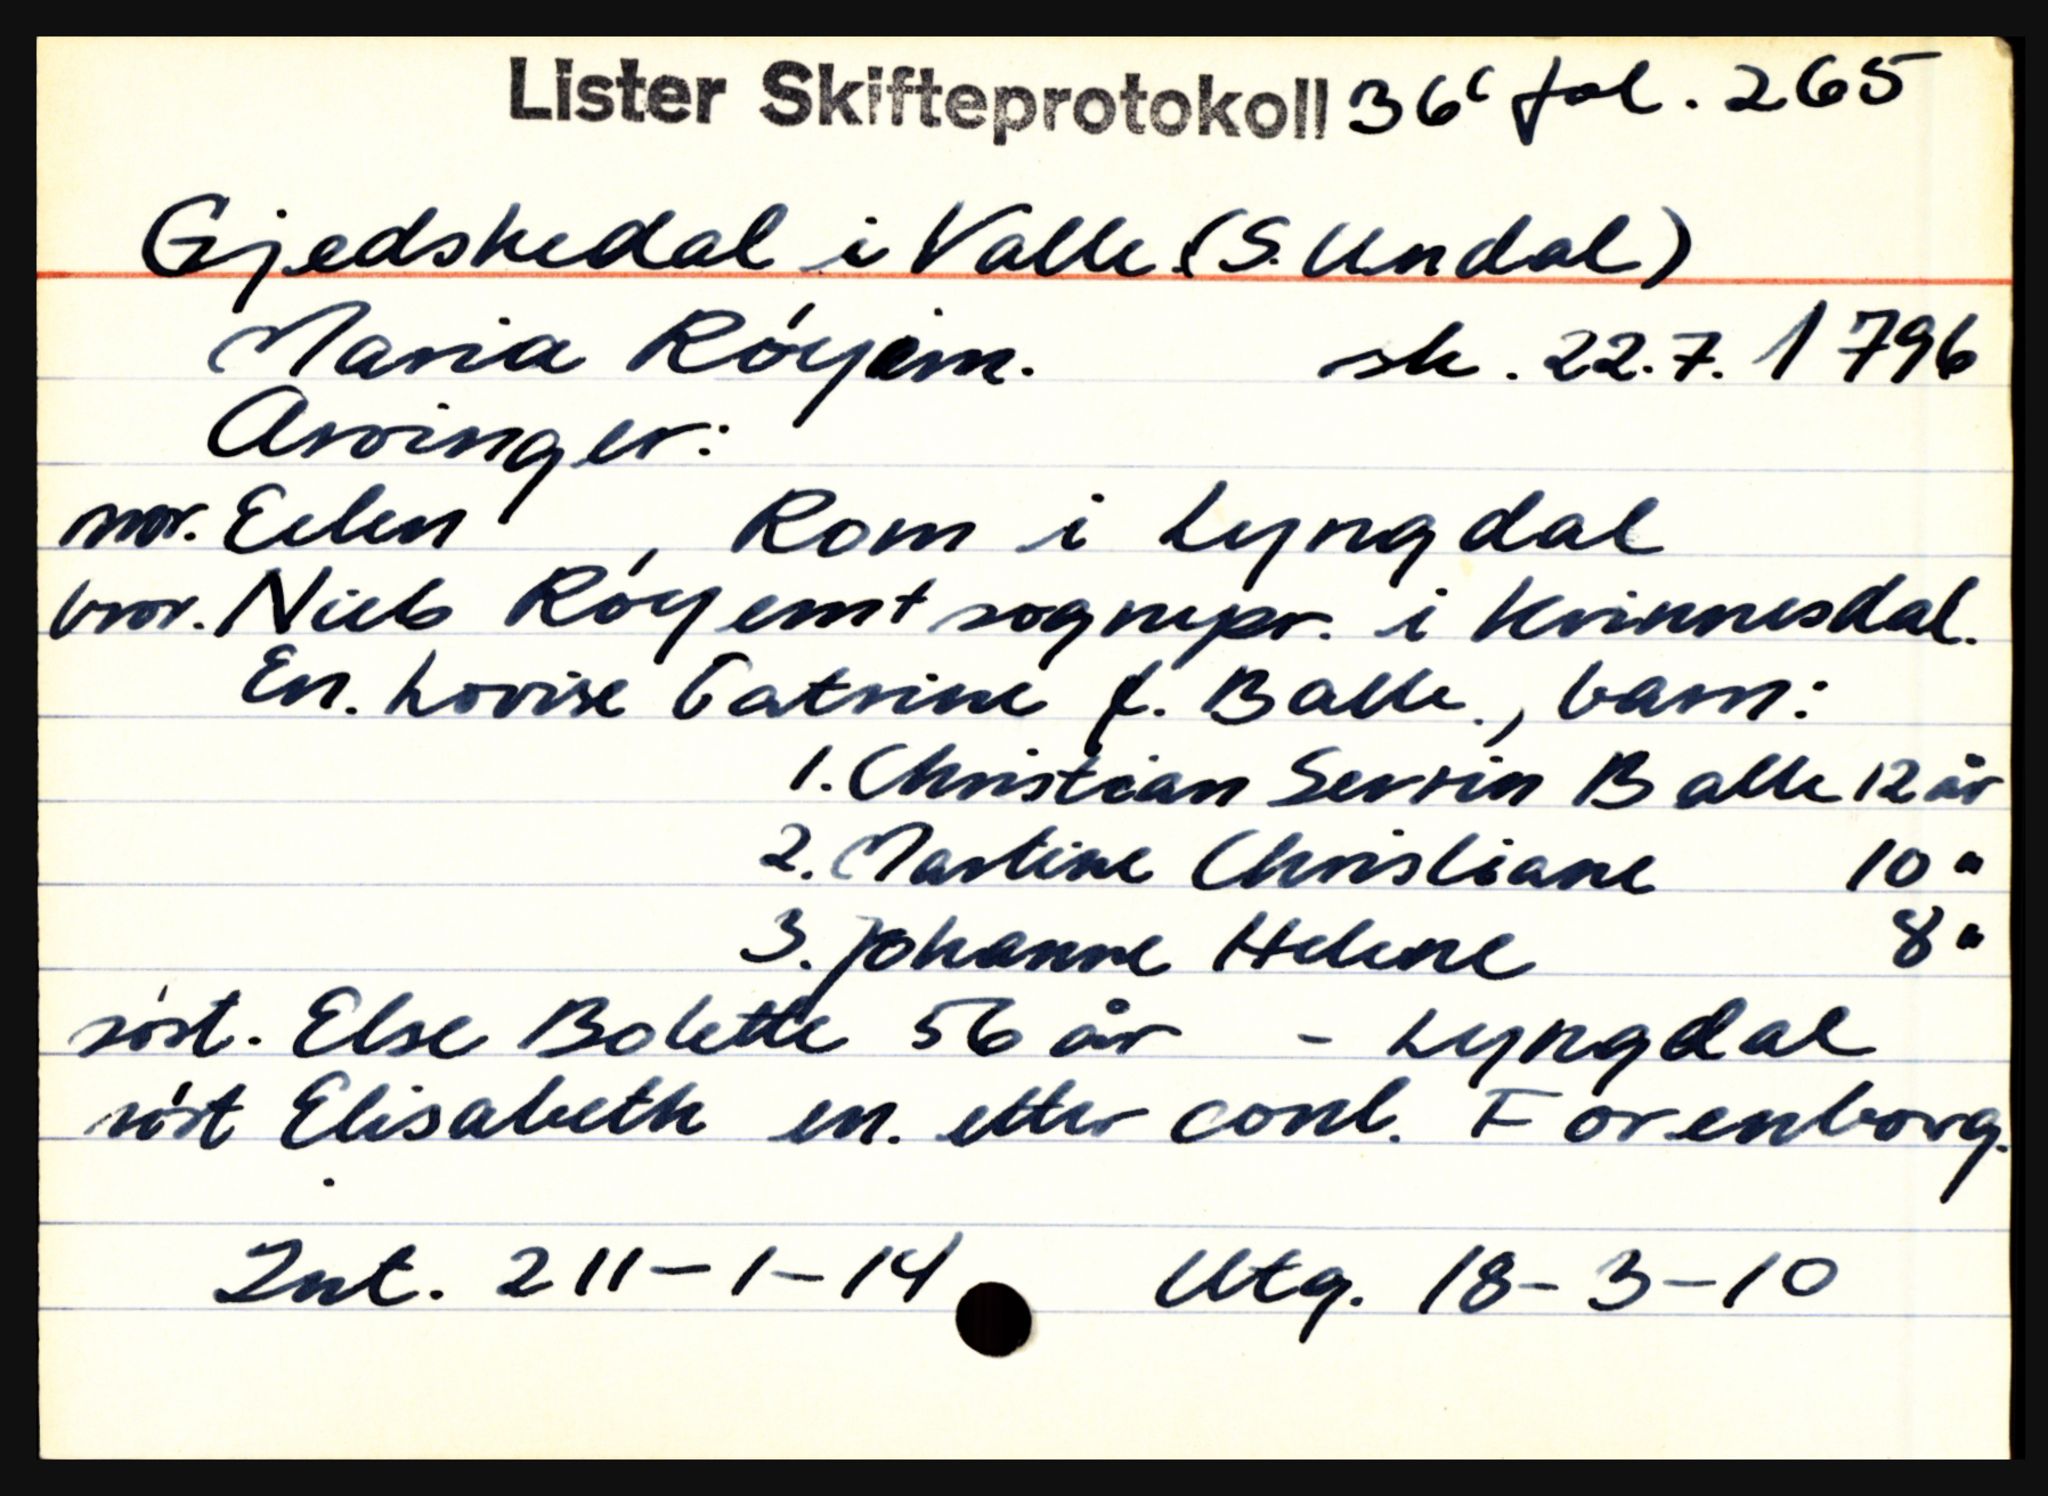 Lister Skifteprotokoll 36c fol. 265
Gjedskedal i Valle (S. Undal)
Maria Röyem. sk. 22.7. 1796
Arvinger:
mor. Eilen , Rom i Lyngdal
bror. Niels Röyemt sognepr. i Kvinnesdal.
En. Lovise Catrine f. Balle., barn:
1. Christian Severin Balle 12 år
2. Martine Christiane 10 "
3. Johanne Helene 8 "
söst. Else Bolette 56 år - Lyngdal
söst Elisabeth en. etter conl. Forenborg.
Int. 211-1-14 Utg. 18-3-10